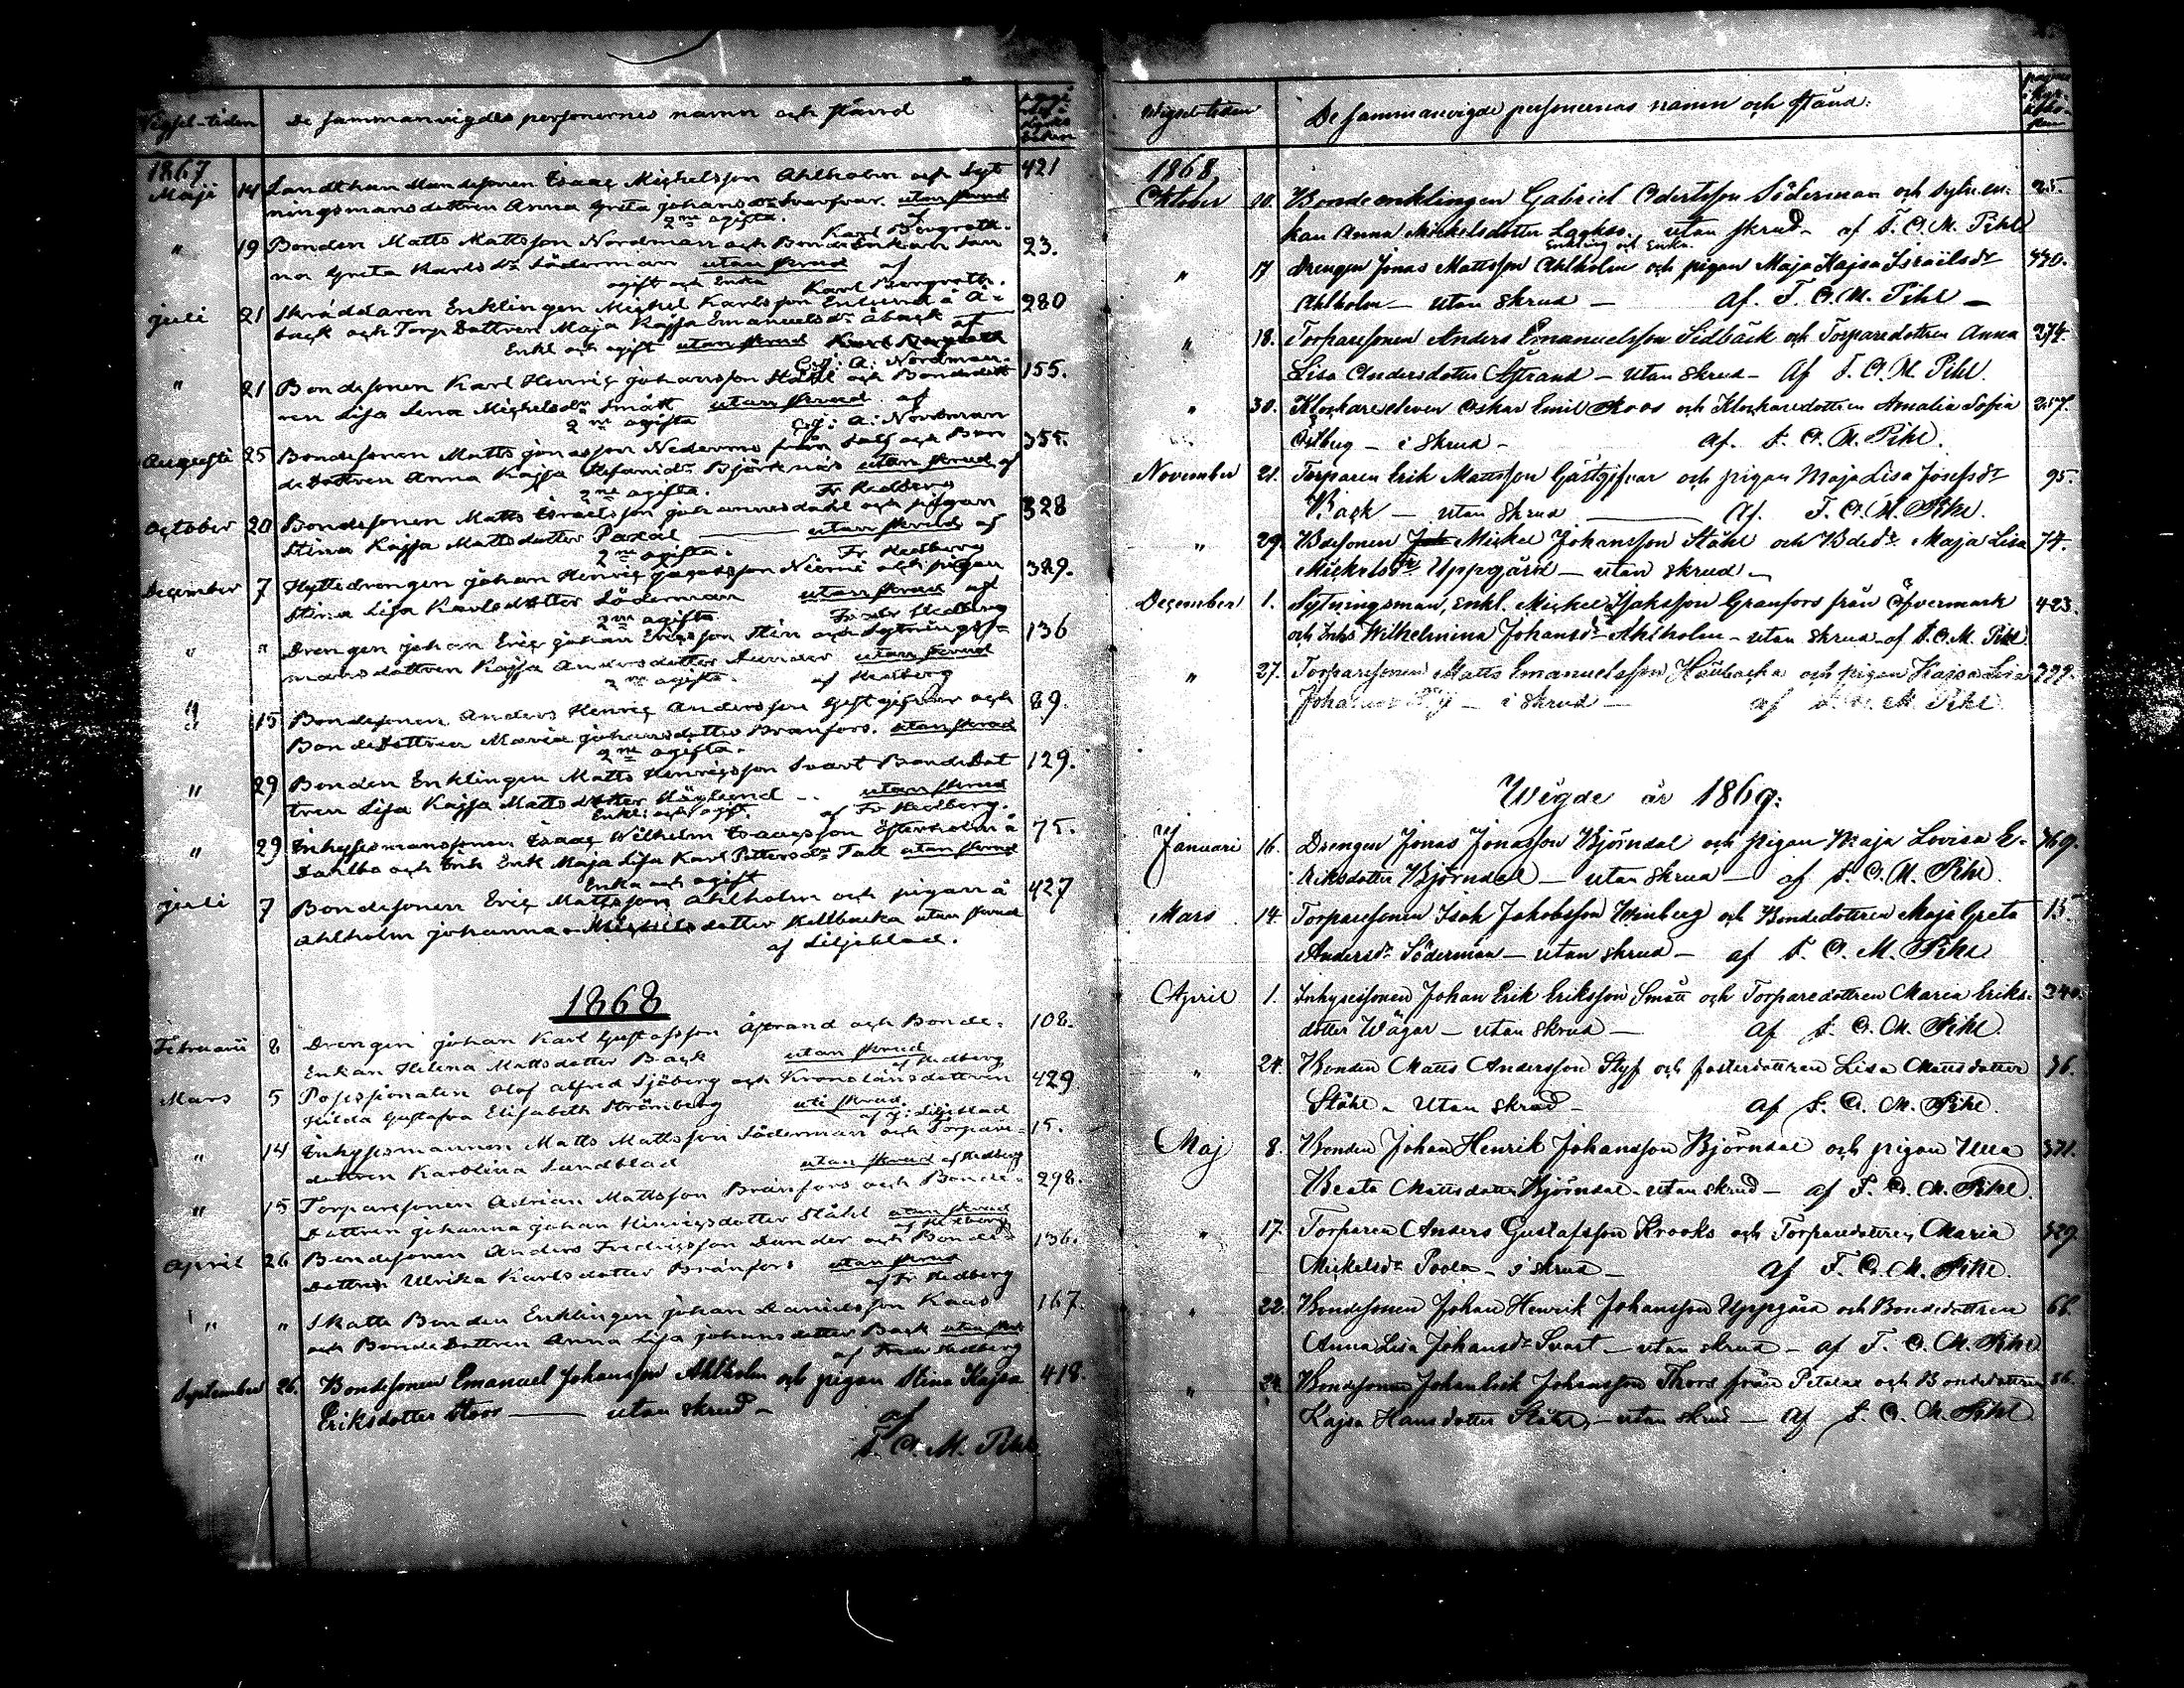 Vigsel-tiden De sammanvigdes personernes namn och stånd
1867
Maji 14 Landthan Mandssonen Isaac Michelsson Ahlholm och Syt 421
ningsmansdottren Anna Greta Johansdr Svarfvar. utan skrud
2ne ogifta. Karl Bergroth.
" 19 Bonden Matts Mattsson Nordman och BondeEnkan San 23.
na Greta Karlsdr Söderman utan skrud af
ogift och Enka Karl Bergroth.
Juli 21 Skräddaren Enklingen Michel Karlsson Enlund å Å- 280
back och Torp. Dottren Maja Kajsa Emanuelsdr Åback af
Enkl och ogift utan skrud Karl Bergroth
C. J: A: Nordman.
" 21 Bondesonen Karl Henric Johansson Ståhl och Bondedott 155.
ren Lisa Lena Michelsdr Smått utan skrud af
2ne ogifta C. J: A: Nordman
Augusti 25 Bondesonen Matts Jonasson Nederms från Solf och Bon 355.
deDottren Anna Kajsa Stefansdr Björknäs utan skrud af
2ne ogifta. Fr Hedberg
October 20 Bondesonen Matts Israelsson Johannesdahl och pigan 328
Stina Kajsa Mattsdotter Paxal utan skrud af
2ne ogifta. Fr Hedberg
December 7 Hyttedrengen Johan Henric Jacobsson Niemi och pigan 329.
Stina Lisa Karlsdotter Söderman utan skrud af
2ne ogifta Fredr Hedberg
" " Drengen Johan Eric Johan Ericsson Sten och Sytnings- 136
mansdottren Kajsa Andersdotter Dunder utan skrud
2ne ogifta. af Hedberg
" 15 Bondesonen Anders Henric Andersson Gästgifvar och 89.
BondeDottren Maria Johansdotter Bränfors. utan skrud
2ne ogifta.
" 29 Bonden Enklingen Matts Henricsson Svart BondeDot 129.
tren Lisa Kajsa Mattsdotter Höglund utan skrud
Enkl: och ogift. af Fr Hedberg.
" 29 Inhysesmanssonen Isaac Wilhelm Isaacsson Österholm å 75.
Dahlbo och Inh Enk Maja Lisa Karl Pettersdr Tall utan skrud
Enka och ogift
Juli 7 Bondesonen Eric Mattsson Ahlholm och pigan å 427
Ahlholm Johanna Michelsdotter Kellbacka utan skrud
af Liljeblad.
1868
Februarii 8 Drengen Johan Karl Gustafsson Åstrand och Bonde- 108.
Enkan Helena Mattsdotter Back utan skrud
af Hedberg
Mars 5 Possessionaten Olof Alfred Sjöberg och Kronolänsdottren 429
Hilda Gustafva Elisabeth Strömberg uti skrud.
af J: Liljeblad
" 14 Inhysesmannen Matts Mattsson Söderman och Torpare- 15.
dottren Karolina Sundblad utan skrud af Hedberg
" 15 Torparesonen Adrian Mattsson Bränfors och Bonde- 298.
Dottren Johanna Johan Henricsdotter Ståhl utan skrud
af Hedberg
April 26 Bondesonen Anders Fredricsson Dunder och Bonde- 136.
Dottren Ulrika Karlsdotter Bränfors utan skrud
af Fr Hedberg
" " Skatte Bonden Enklingen Johan Danielsson Kaas 167.
och BondeDottren Anna Lisa Johansdotter Back utan skrud
af Fredr Hedberg
September 26. Bondesonen Emanuel Johansson Ahlholm och pigan Stina Kajsa 418.
Eriksdotter Stoor — utan skrud — af
F. O. M. Pihl
Wigsel-tiden De sammanvigde personernas namn och stånd.
1868,
Oktober 10. Bondeenklingen Gabriel Odertsson Söderman och sytn.en- 25.
kan Anna Mickelsdotter Lackso. utan skrud – af F. O. M. Pihl
Enkling och Enka.
" 17 Drengen Jonas Mattsson Ahlholm och pigan Maja Kajsa Israelsdr 420.
Ahlholm — utan skrud — af. F. O. M. Pihl —
" 18. Torparesonen Anders Emanuelsson Sidbäck och Torparedottren Anna 274.
Lisa Andersdotter Åstrand – utan skrud – Af F. O. M. Pihl.
" 30. Klockareeleven Oskar Emil Roos och Klockaredottren Amalia Sofia 257.
Östberg – i skrud – af. F. O. M. Pihl.
November 21. Torparen Erik Mattsson Gästgifvar och pigan Maja Lisa Josefsdr 95.
Back — utan skrud — af. F. O. M. Pihl.
" 29. Bdesonen Mickel Johansson Ståhl och Bdedr Maja Lisa 74.
Mickelsdr Uppgård – utan skrud –
December 1. Sytningsman, enkl. Mickel Isaksson Granfors från Öfvermark 423.
och Inhs Wilhelmina Johansdr Ahlholm – utan skrud – af F. O. M. Pihl.
" 27. Torparesonen Matts Emanuelsson Höubacka och pigan Kajsa Lisa 329.
– i skrud – af F. O. M. Pihl.
Wigde år 1869.
Januari 16. Drengen Jonas Jonasson Björndal och pigan Maja Lovisa E- 369.
riksdotter Björndal – utan skrud – af F. O. M. Pihl.
Mars 14. Torparesonen Isak Jakobsson Winberg och Bondedottren Maja Greta 15.
Andersdr Söderman – utan skrud – af F. O. M. Pihl
April 1. Inhysessonen Johan Erik Eriksson Smått och Torparedottren Maria Eriks- 340.
dotter Wägar – utan skrud – af F. O. M. Pihl.
" 24. Bonden Matts Andersson Styf och fosterdottren Lisa Mattsdotter 36.
Ståhl – utan skrud – af F. O. M. Pihl.
Maj 8. Bonden Johan Henrik Johansson Björndal och pigan Ulla 371.
Beata Mattsdotter Björndal – utan skrud – af F. O. M. Pihl.
" 17. Torparen Anders Gustafsson Krooks och Torparedottren Maria 329.
Mickelsdr Poola – i skrud – af F. O. M. Pihl.
" 22. Bondesonen Johan Henrik Johansson Uppgård och Bondedottren 66.
Anna Lisa Johansdr Svart – utan skrud – af F. O. M. Pihl
" 24. Bondesonen Johan Erik Johansson Thors från Petalax och Bondedottren 86.
Kajsa Hansdotter Ståhl, – utan skrud – af F. O. M. Pihl